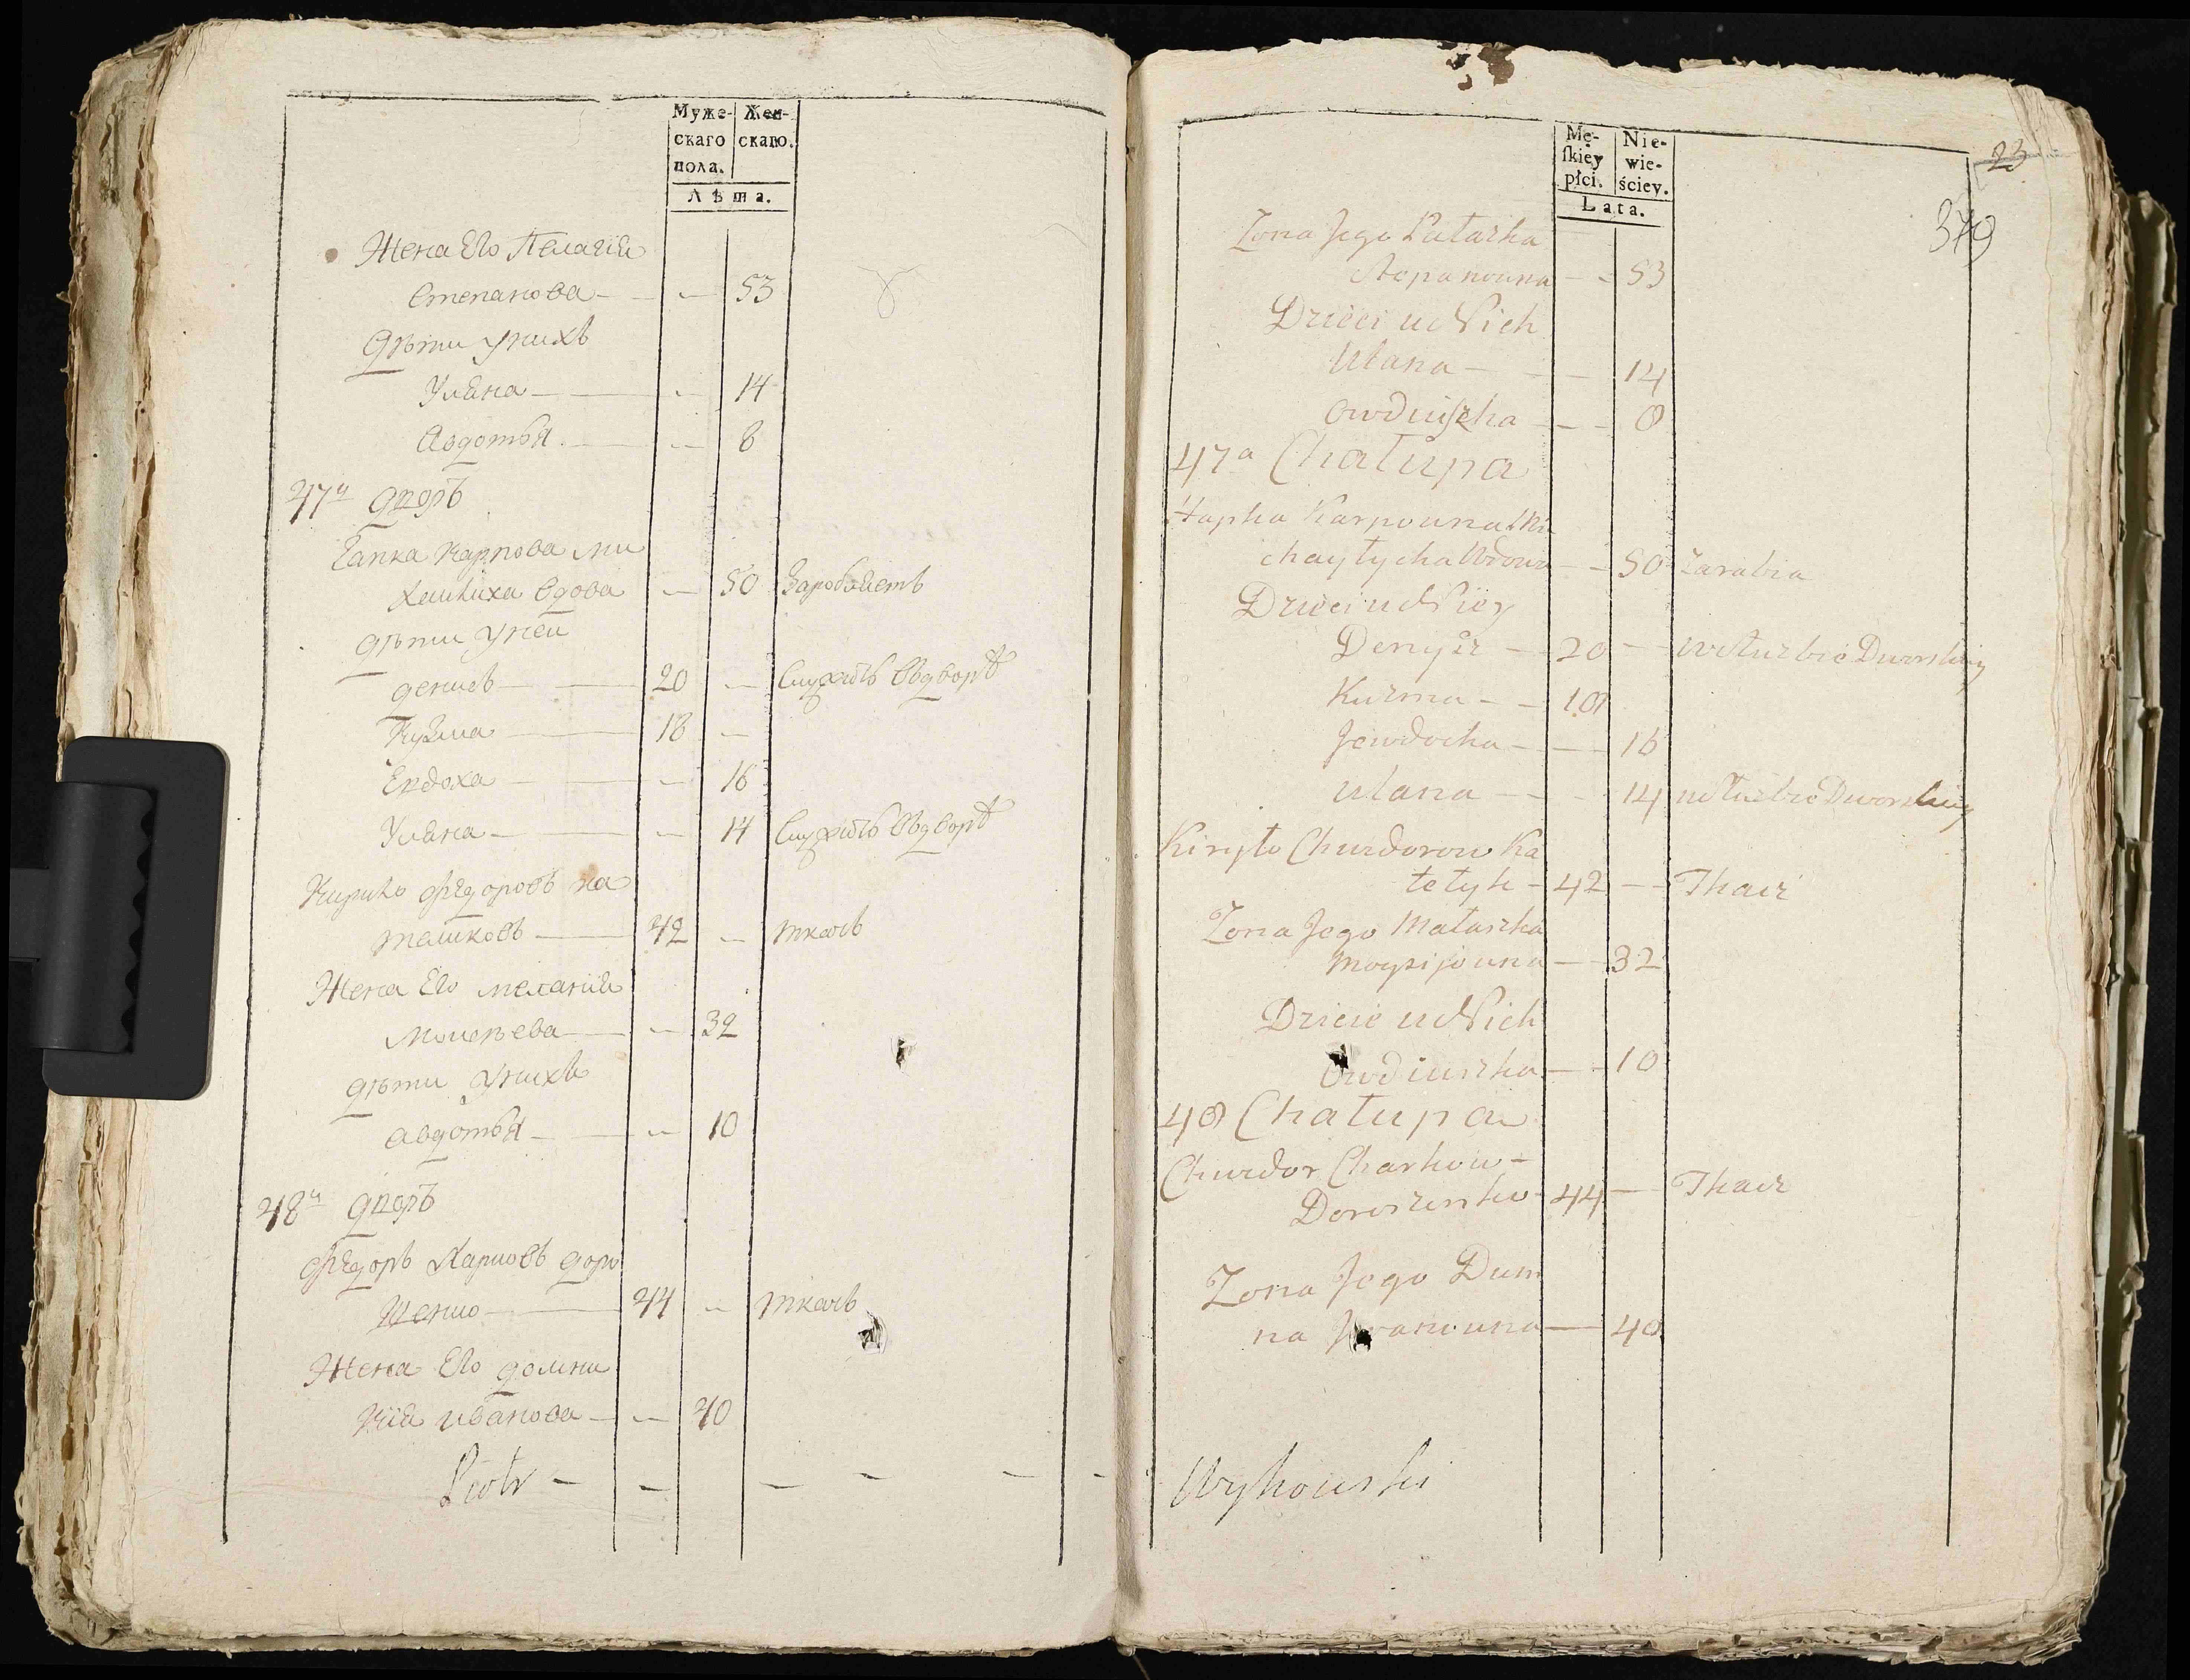 Муже-
скаго
пола.
Жен-
скаго.
Лѣта.
Жена Его Пелагія
Степанова — — 53
Дѣти Унихъ
Уляна — — 14
Авдотья — — 8
47й дворъ
Гапка Карпова Ми
хайлиха вдова — 50 Заробляетъ
дѣти Уней
денисъ — 20 — Служитъ Вдворѣ
Кузма — 18 —
Евдоха — — 16
Уляна — — 14 Служитъ Вдворѣ
Кирило Фёдоровъ ка
таликовъ — 42 — ткачъ
Жена Его меланія
Мосѣева — — 32
дѣти Унихъ
авдотья — — 10
48й дворъ
Фёдоръ Харковъ доро
шенко — 44 — ткачъ
Жена Его домни
кія иванова — — 40
Piotr — — — — — —
Mę-
ſkiey
płci.
Nie-
wie-
ściey.
Lata.
23
379
Zona Jego Pałaszka
Stepanowna — — 53
Dzieci u Nich
Ulana — — 14
Owdiuszka — — 8
47a Chałupa
Hapka Karpowna Mi
chayłycha Wdowa — — 50 Zarabia
Dzieci u Niey
Denysz — 20 — w Służbie Dworskiey
Kuzma — — 18
Jewdocha — — 16
Ulana — — 14 w Służbie Dworskiey
Kiryło Chwedorow Ka
tełyk — 42 — Tkacz
Zona Jego Małaszka
Moysijowna — 32
Dziecie u Nich
Owdiuszka — — 10
48 Chałupa
Chwedor Charkow —
Doroszenko — 44 — Tkacz
Zona Jego Dum
na Jwanowna — 40
Wyhowski